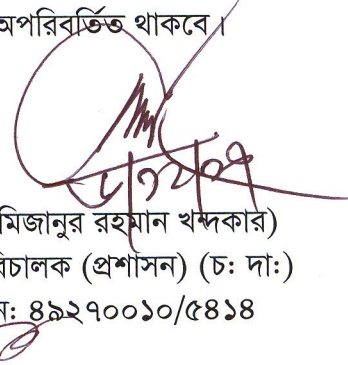 অপরিবর্তিত থাকবে।
মিজানুর রহমান খন্দকার)
(প্রশাসন) (চ: দা:)
৪৯২৭০০১০/৫৪১৪